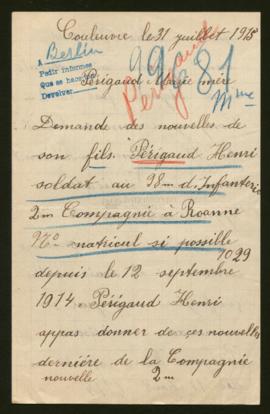 Couleuvre le 31 juillet 1915
A Berlin
Pedir informes
Que se hace
Devolver
99081
Périgaud
Mme
Périgaud Marie mère
Demande des nouvelles de
son fils Périgaud Henri
soldat au 98m d'Infanterie
2m Compagnie à Roanne
No matricul si possible
7029
depuis le 12 septembre
1914 Périgaud Henri
appas donner de ces nouvelle
derniére de la Compagnie
nouvelle 2m